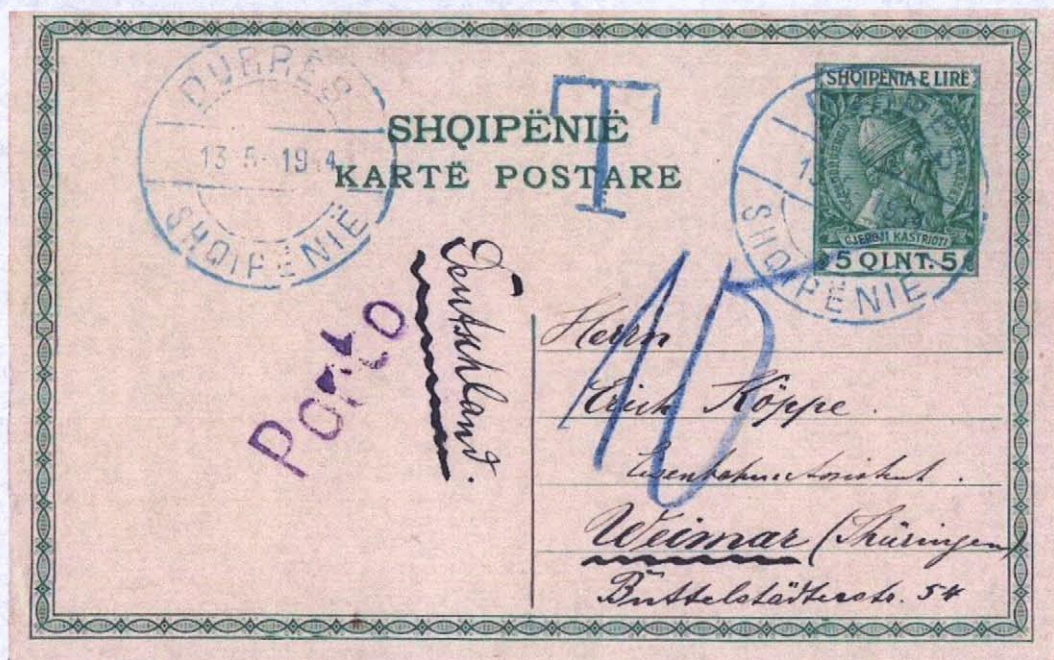 DURRËS
13 5 1914
SHQIPËNIË
SHQIPËNIË
KARTË POSTARE
T
SHQIPËNIA E LIRË
GJERGJ KASTRIOTI
5 QINT. 5
SHQIPËNIË
Deutschland.
Porto
10
Herrn
Erich Köppe.
Eisenbahnassistent.
Weimar (Thüringen)
Buttelstädterstr. 54